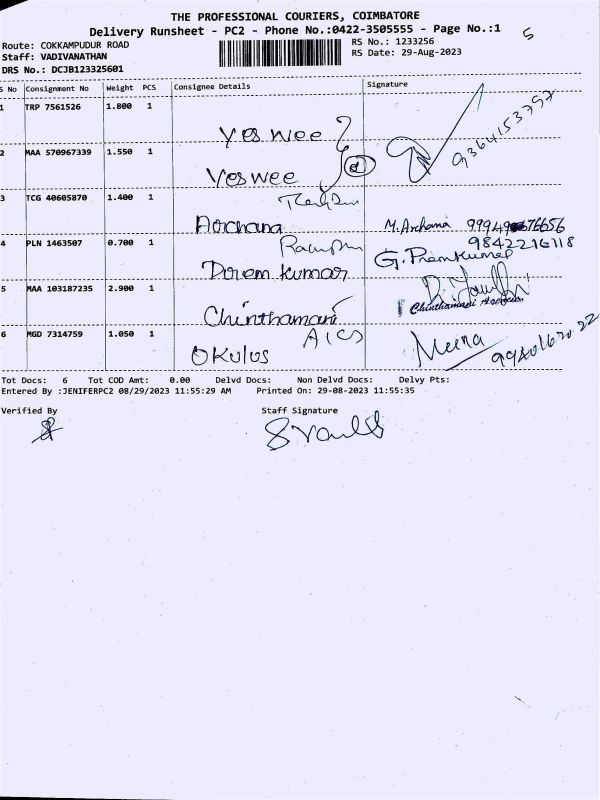 THE PROFESSIONAL COURIERS, COIMBATORE
Delivery Runsheet - PC2 - Phone No.:0422-3505555 - Page No.:1
5
Route: COKKAMPUDUR ROAD
RS No.: 1233256
Staff: VADIVANATHAN
RS Date: 29-Aug-2023
DRS No.: DCJB123325601
S No Consignment No Weight PCS Consignee Details Signature
1 TRP 7561526 1.800 1
Yes wee
9364153797
2 MAA 570967339 1.550 1
Yeswee
3 TCG 40605870 1.400 1
Archana M. Archana
4 PLN 1463507 0.700 1
9842216118
Prem kumar G. Premkumar
5 MAA 103187235 2.900 1
Chinthamani
Chinthamani
6 MGD 7314759 1.050 1
OKulus Meena
Tot Docs: 6 Tot COD Amt: 0.00 Delvd Docs: Non Delvd Docs: Delvy Pts:
Entered By :JENIFERPC2 08/29/2023 11:55:29 AM Printed On: 29-08-2023 11:55:35
Verified By Staff Signature